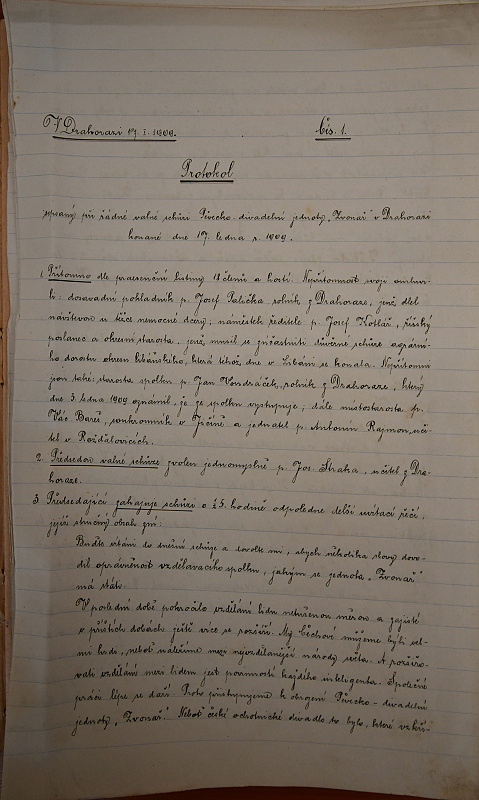 V Drahorazi 17. I. 1909.
čís. 1.
Protokol
sepsaný při řádné valné schůzi Pěvecko-divadelní jednoty „Zvonař" v Drahorazi
konané dne 17. ledna r. 1909.
1. Přítomno dle praesenční listiny 18 členů a hostí. Nepřítomnost svoji omluvi-
li: dosavadní pokladník p. Josef Palička rolník z Drahoraze, jenž dlel
návštěvou u těžce nemocné dcery, náměstek ředitele p. Josef Kotlář, říšský
poslanec a okresní starosta, jenž musil se zúčastniti důvěrné schůze agrární-
ho dorostu okresu libáňského, která téhož dne v Libáni se konala. Nepřítomni
jsou také: starosta spolku p. Jan Vondráček, rolník z Drahoraze, který
dne 3. ledna 1909 oznámil, že ze spolku vystupuje; dále místostarosta p.
Vác. Bareš, soukromník v Jičíně a jednatel p. Antonín Rajmon, uči-
tel v Rožďalovicích.
2. Předsedou valné schůze zvolen jednomyslně p. Jos. Straka, učitel z Dra-
horaze.
3. Předsedající zahajuje schůzi o ½5. hodině odpoledne delší uvítací řečí,
jejíž stručný obsah zní:
Buďte vítáni do dnešní schůze a dovolte mi, abych několika slovy dovo-
dil oprávněnost vzdělávacího spolku, jakým se jednota „Zvonař"
má státi.
V poslední době pokročilo vzdělání lidu netušenou měrou a zajisté
v příštích dobách ještě více se rozšíří. My Čechové můžeme býti vel-
mi hrdi, neboť náležíme mezi nejvzdělanější národy světa. A rozšiřo-
vati vzdělání mezi lidem jest povinností každého inteligenta. Společné
práci lépe se daří. Proto přistupujeme k obrození Pěvecko-divadelní
jednoty „Zvonař." Neboť české ochotnické divadlo to bylo, které vzkří-